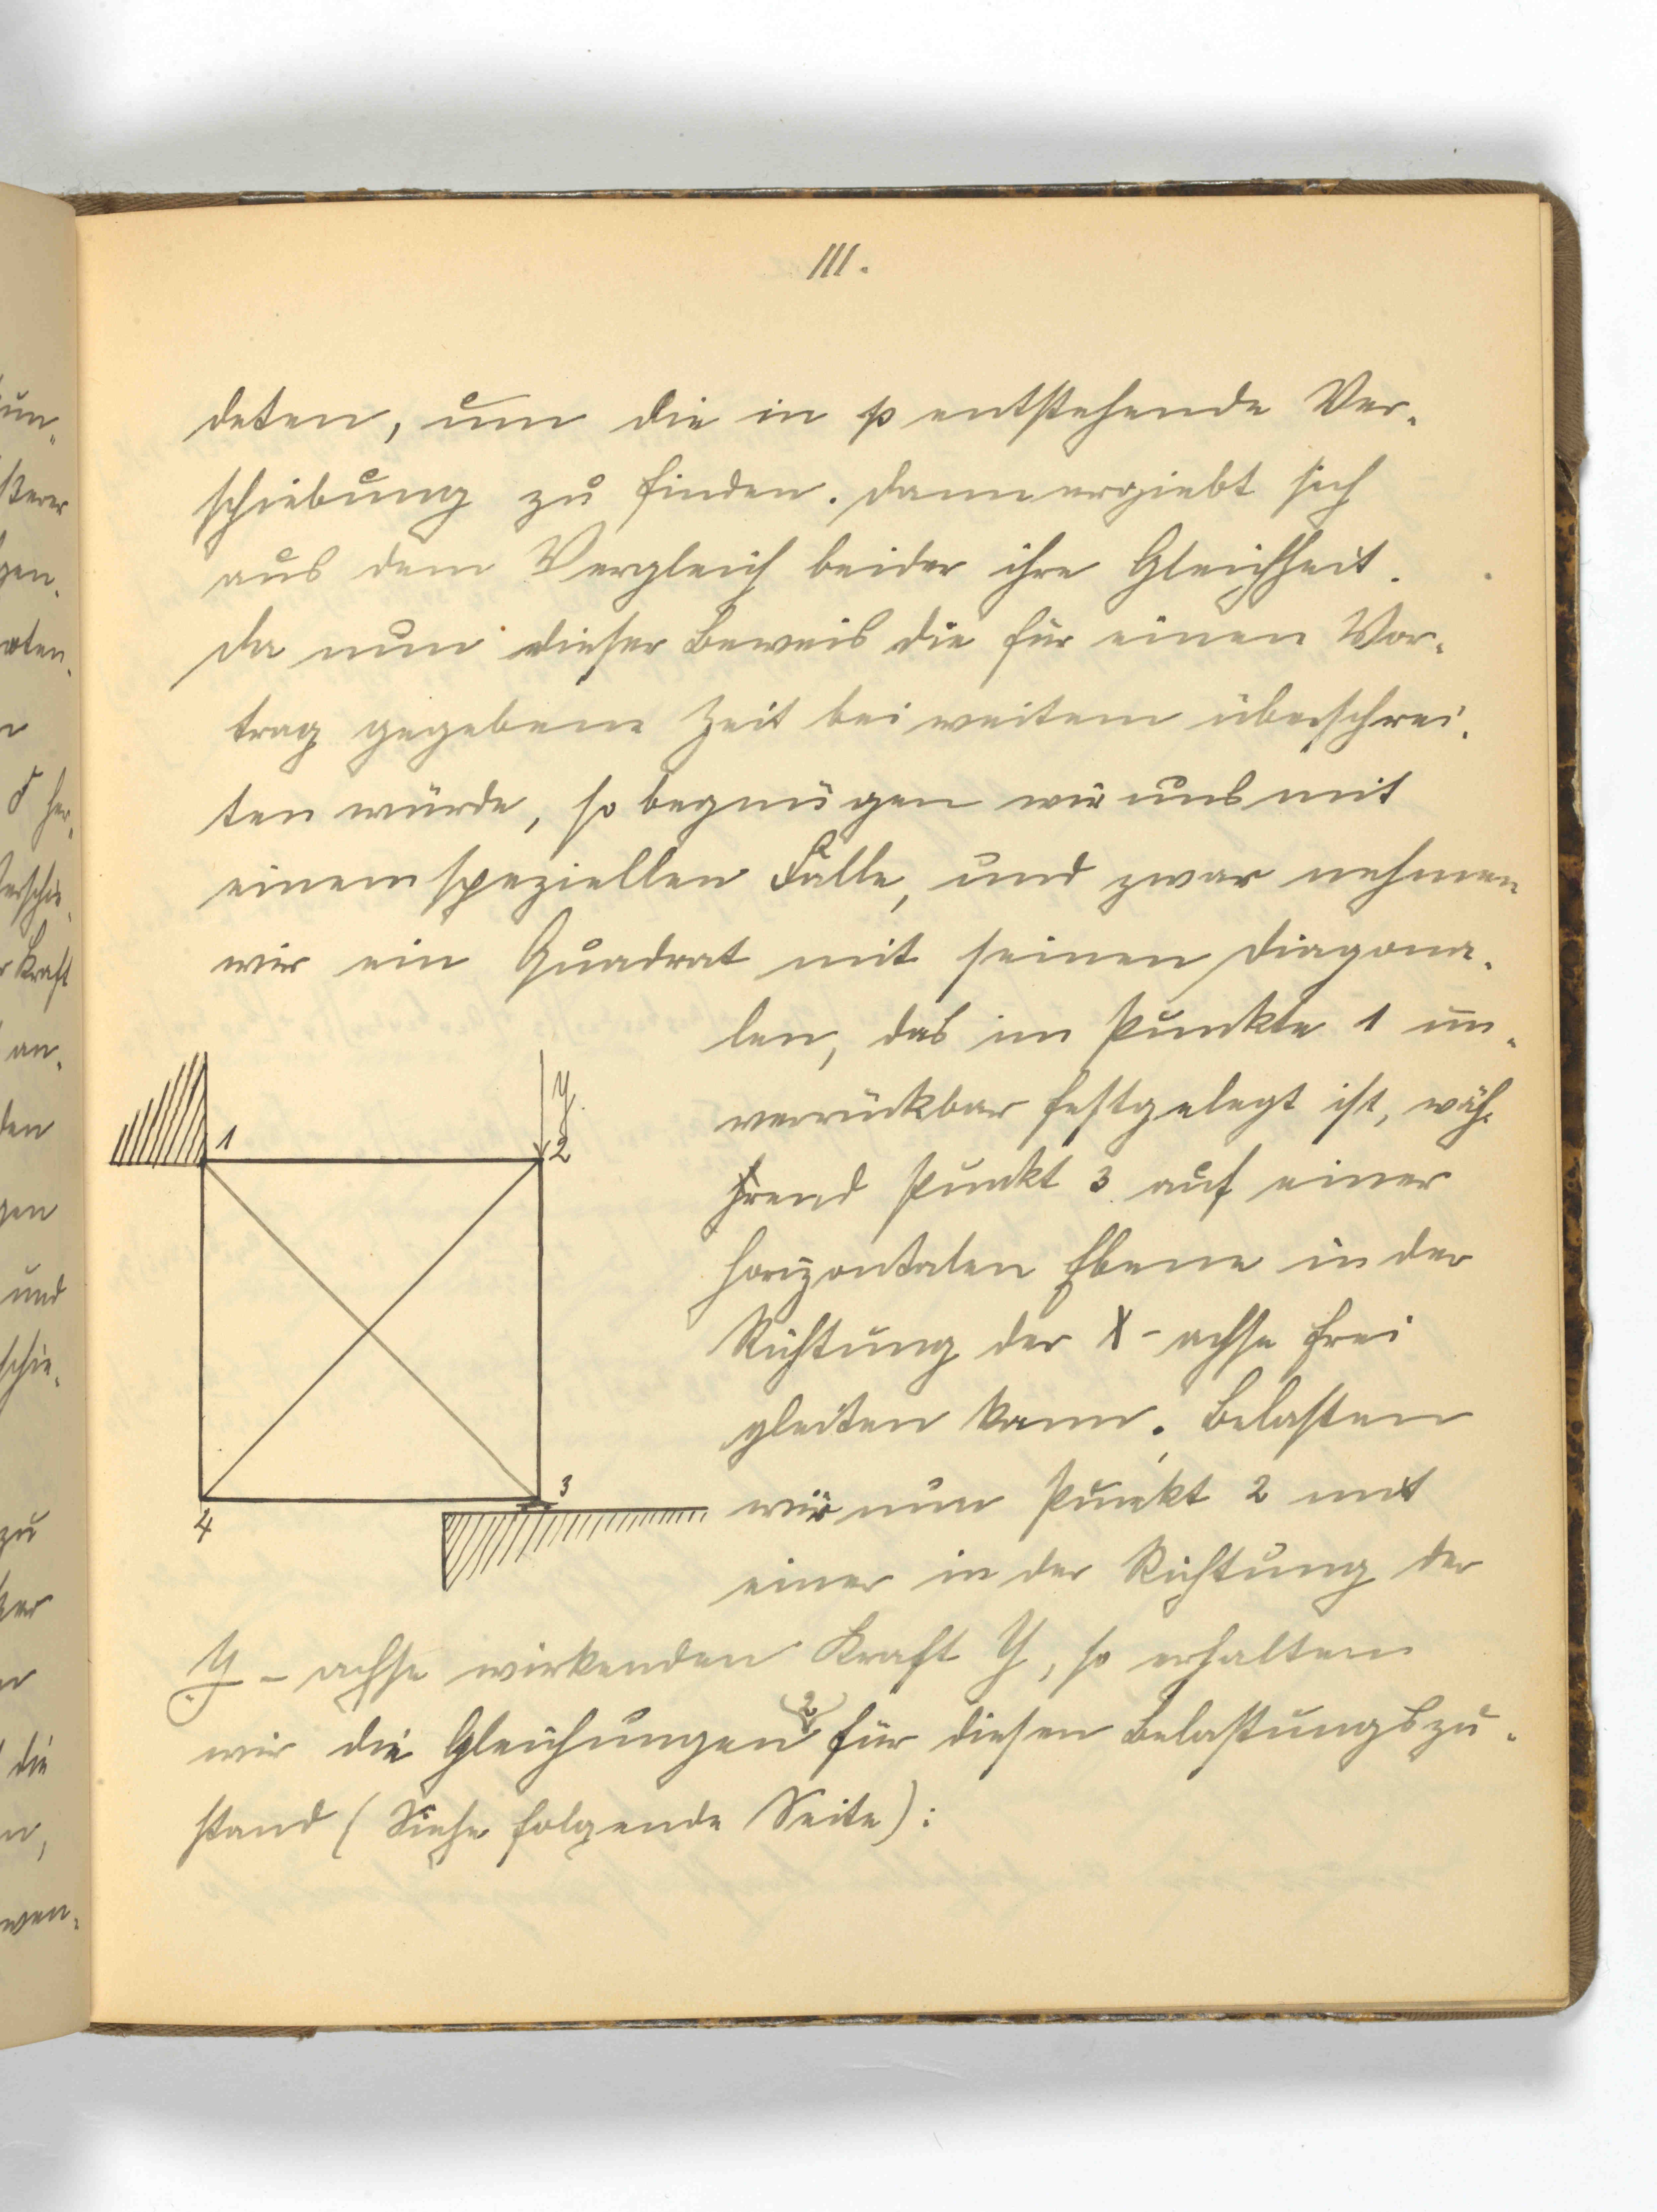 III.
deten, um die in p entstehende Ver-
schiebung zu finden. Dann ergiebt sich
aus dem Vergleich beider ihre Gleichheit.
Da nun dieser Beweis die für einen Vor-
trag gegebene Zeit bei weitem überschrei-
ten würde, so begnügen wir uns mit
einem speziellen Falle, und zwar nehmen
wir ein Quadrat mit seinen Diagona-
len, das im Punkte 1 un-
verrückbar festgelegt ist, wäh-
rend Punkt 3 auf einer
horizontalen Ebene in der
Richtung der X-achse frei
gleiten kann. Belasten
wir nun Punkt 2 mit
einer in der Richtung der
Y-achse wirkenden Kraft Y, so erhalten
wir die Gleichungen (2) für diesen Belastungszu-
stand (Siehe folgende Seite):
1
Y.
2
3
4
un-
gen-
her-
Kraft
an-
den
gen
und
schie-
zu
die
wen-